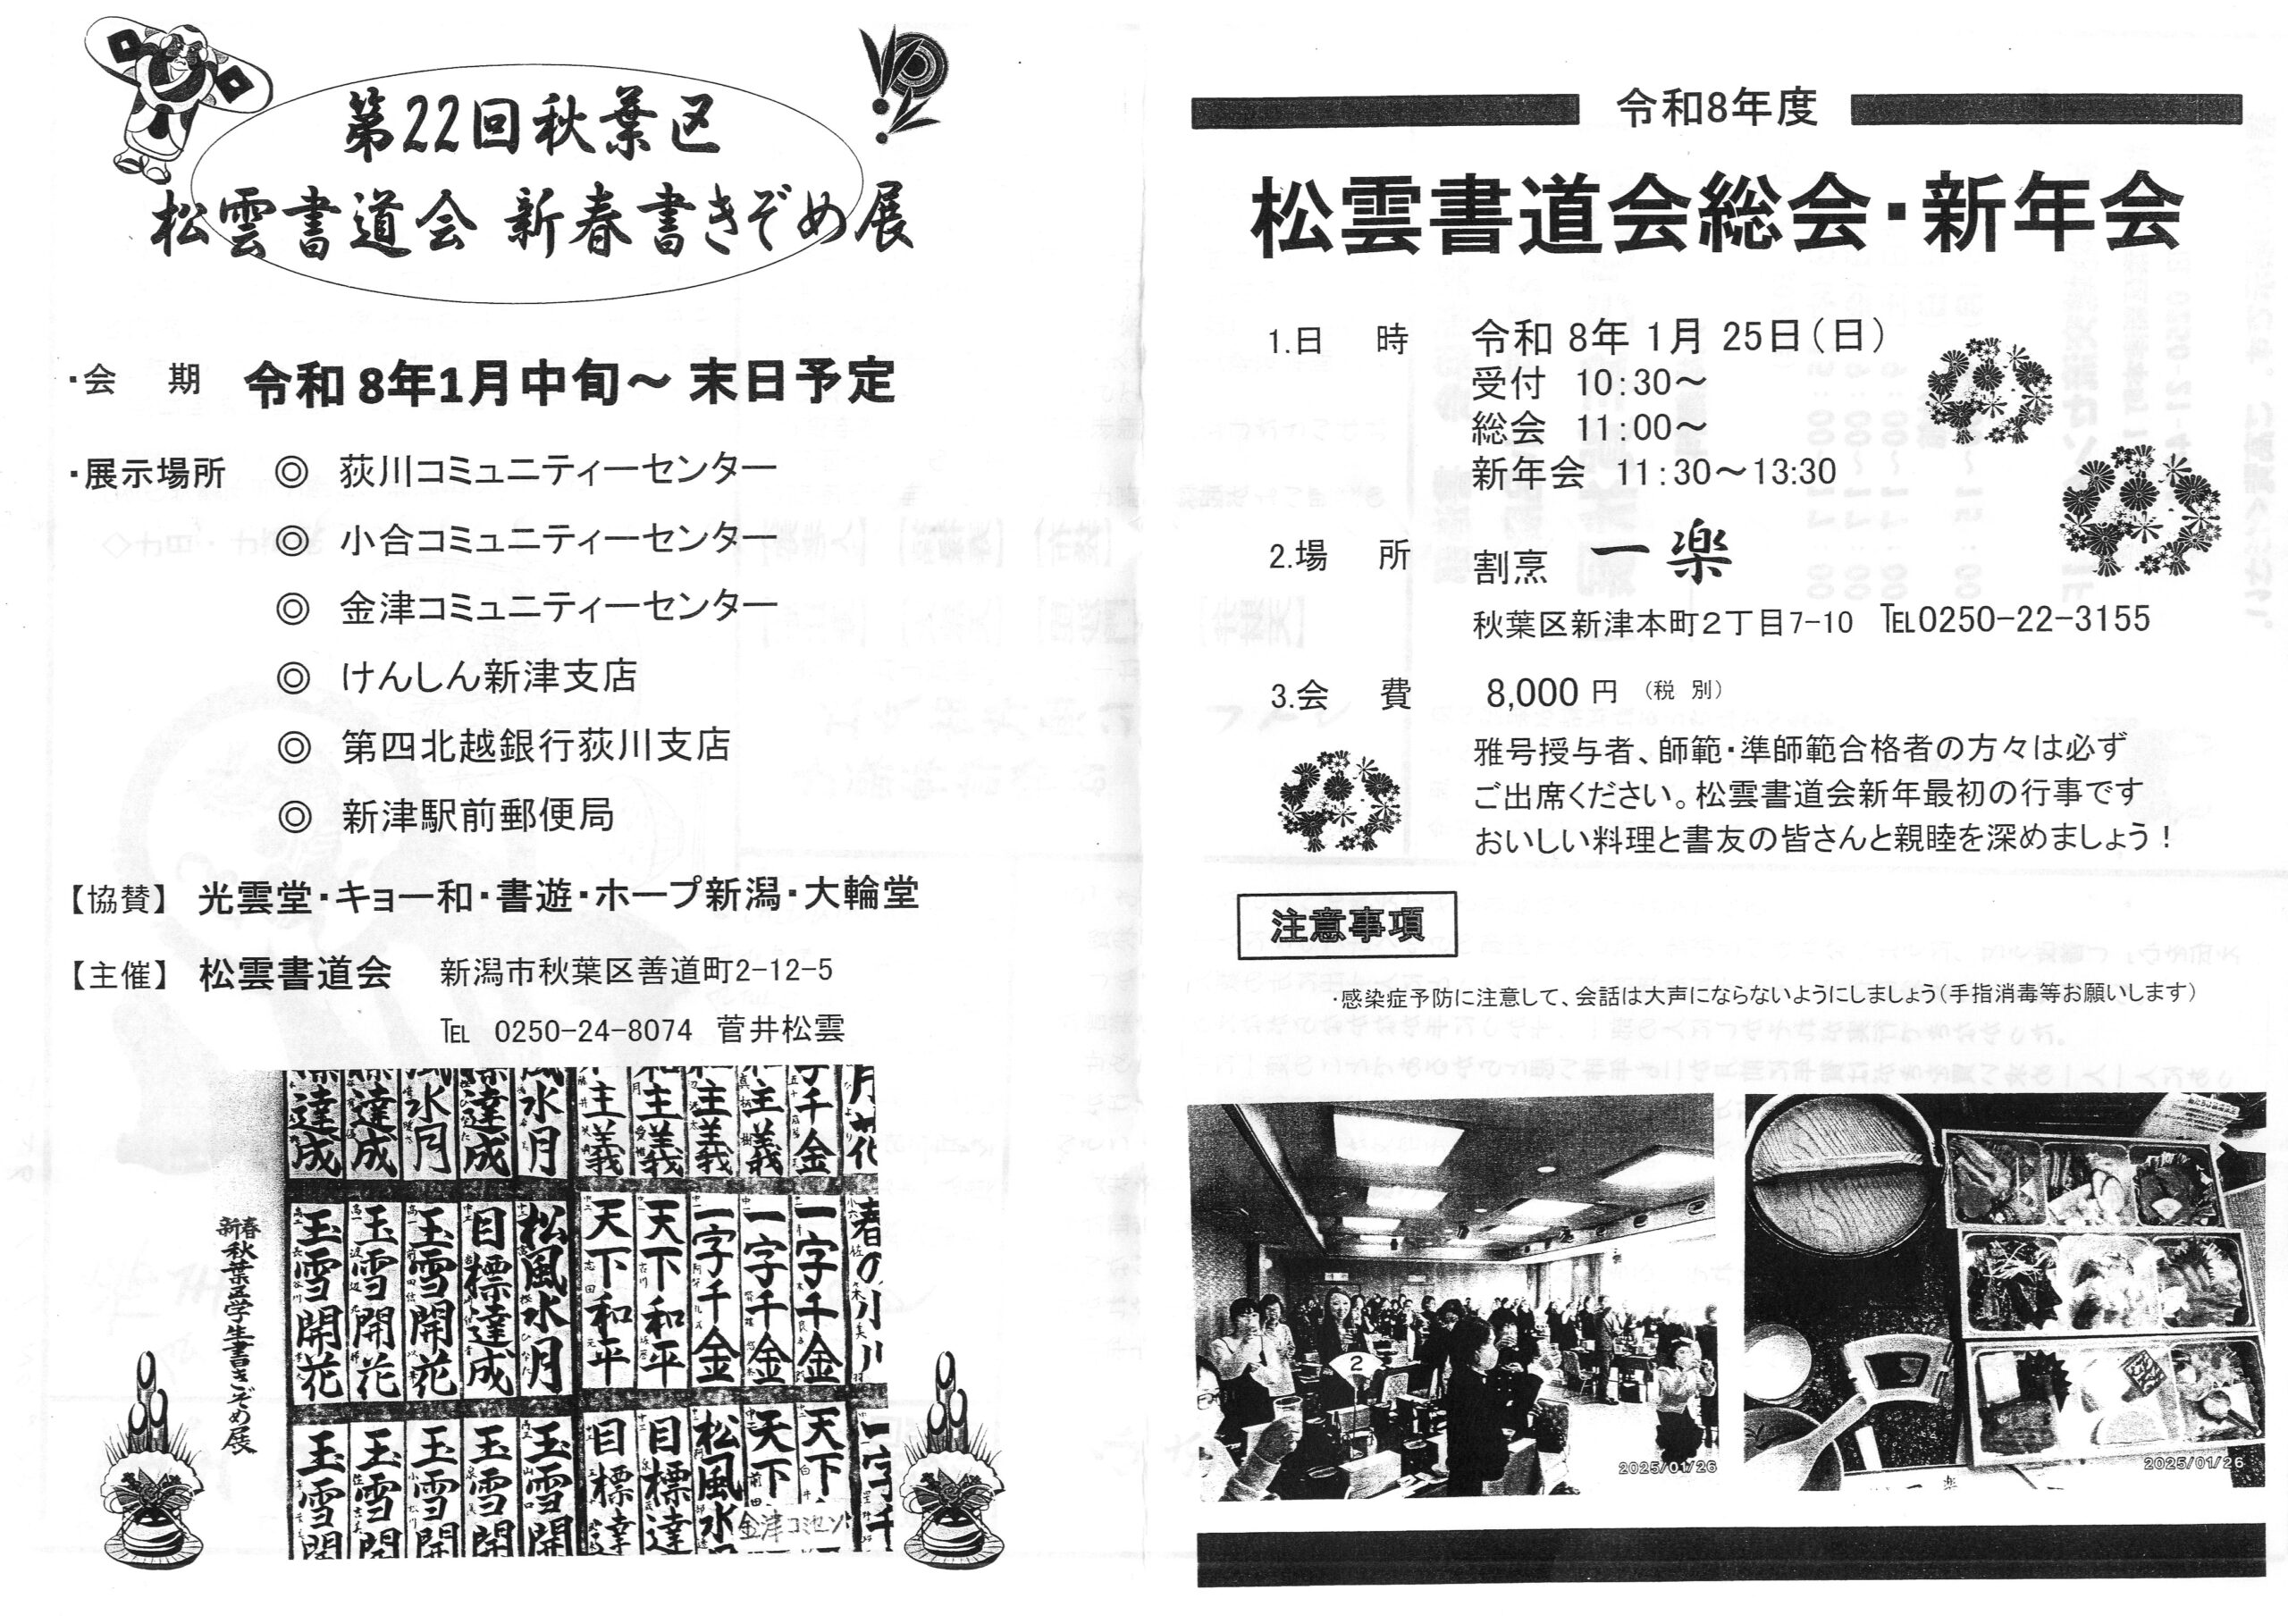 第22回秋葉区
松雲書道会 新春書きぞめ展
・会 期 令和8年1月中旬～末日予定
・展示場所 ◎ 荻川コミュニティーセンター
◎ 小合コミュニティーセンター
◎ 金津コミュニティーセンター
◎ けんしん新津支店
◎ 第四北越銀行荻川支店
◎ 新津駅前郵便局
【協賛】 光雲堂・キョー和・書遊・ホープ新潟・大輪堂
【主催】 松雲書道会 新潟市秋葉区善道町2-12-5
℡ 0250-24-8074 菅井松雲
新春 秋葉区学生書きぞめ展
達成
達成
水月
達成
水月
主義
主義
主義
主義
千金
月花
玉雪開花
玉雪開花
玉雪開花
目標達成
松風水月
天下和平
天下和平
一字千金
一字千金
一字千金
春の小川
玉雪開
玉雪開
玉雪開
玉雪開
玉雪開
目標達
目標達
松風水
天下
天下
一字千
金津コミセン
令和8年度
松雲書道会総会・新年会
1.日 時 令和 8年 1月 25日（日）
受付 10：30～
総会 11：00～
新年会 11：30～13:30
2.場 所 割烹 一楽
秋葉区新津本町2丁目7-10 ℡0250-22-3155
3.会 費 8,000 円 （税 別）
雅号授与者、師範・準師範合格者の方々は必ず
ご出席ください。松雲書道会新年最初の行事です
おいしい料理と書友の皆さんと親睦を深めましょう！
注意事項
・感染症予防に注意して、会話は大声にならないようにしましょう（手指消毒等お願いします）
2
2025/01/26
2025/01/26